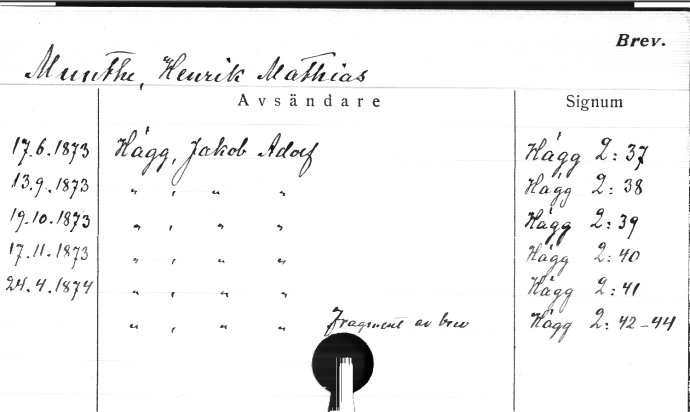 Brev.
Munthe, Henrik Mathias
Avsändare Signum
17.6.1873 Hägg, Jakob Adolf Hägg 2:37
13.9.1873 " , " " Hägg 2:38
19.10.1873 " , " " Hägg 2:39
17.11.1873 " , " " Hägg 2:40
24.4.1874 " , " " Hägg 2:41
" , " " Fragment av brev Hägg 2:42-44